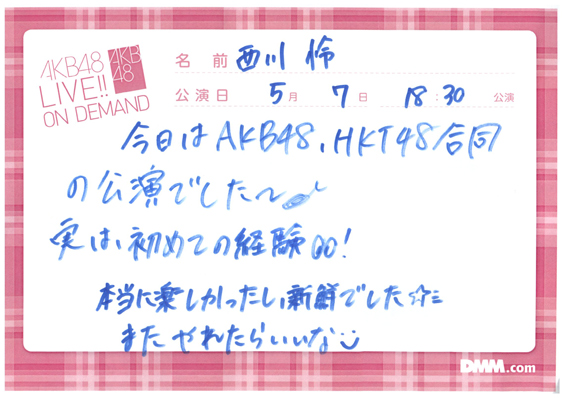 AKB48
LIVE!!
ON DEMAND
AKB
48
名 前 西川 怜
公演日 5月 7日 18:30 公演
今日はAKB48、HKT48合同
の公演でした〜
実は、初めての経験!
本当に楽しかったし、新鮮でした☆
またやれたらいいな
DMM.com